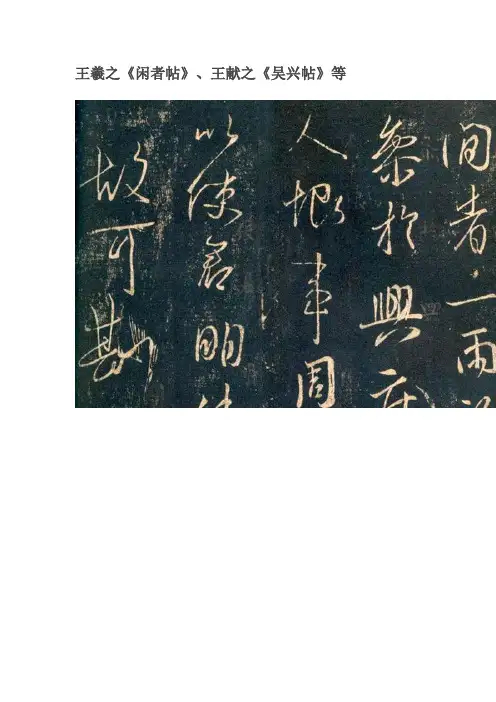 王羲之《闲者帖》、王献之《吴兴帖》等
間者一雨
於興
人 事周
以使君明
故可